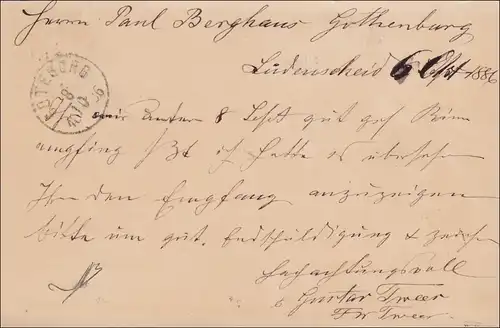 Herrn Paul Berghaus Gothenburg
Lüdenscheid 6 Okt 1886
GÖTEBORG
8 10
unter 8 Sept gut
empfing ich hatte es übersehen
Ihnen den Empfang anzuzeigen
bitte um gut. Entschuldigung &
hochachtungsvoll
Gustav Tweer
Tweer